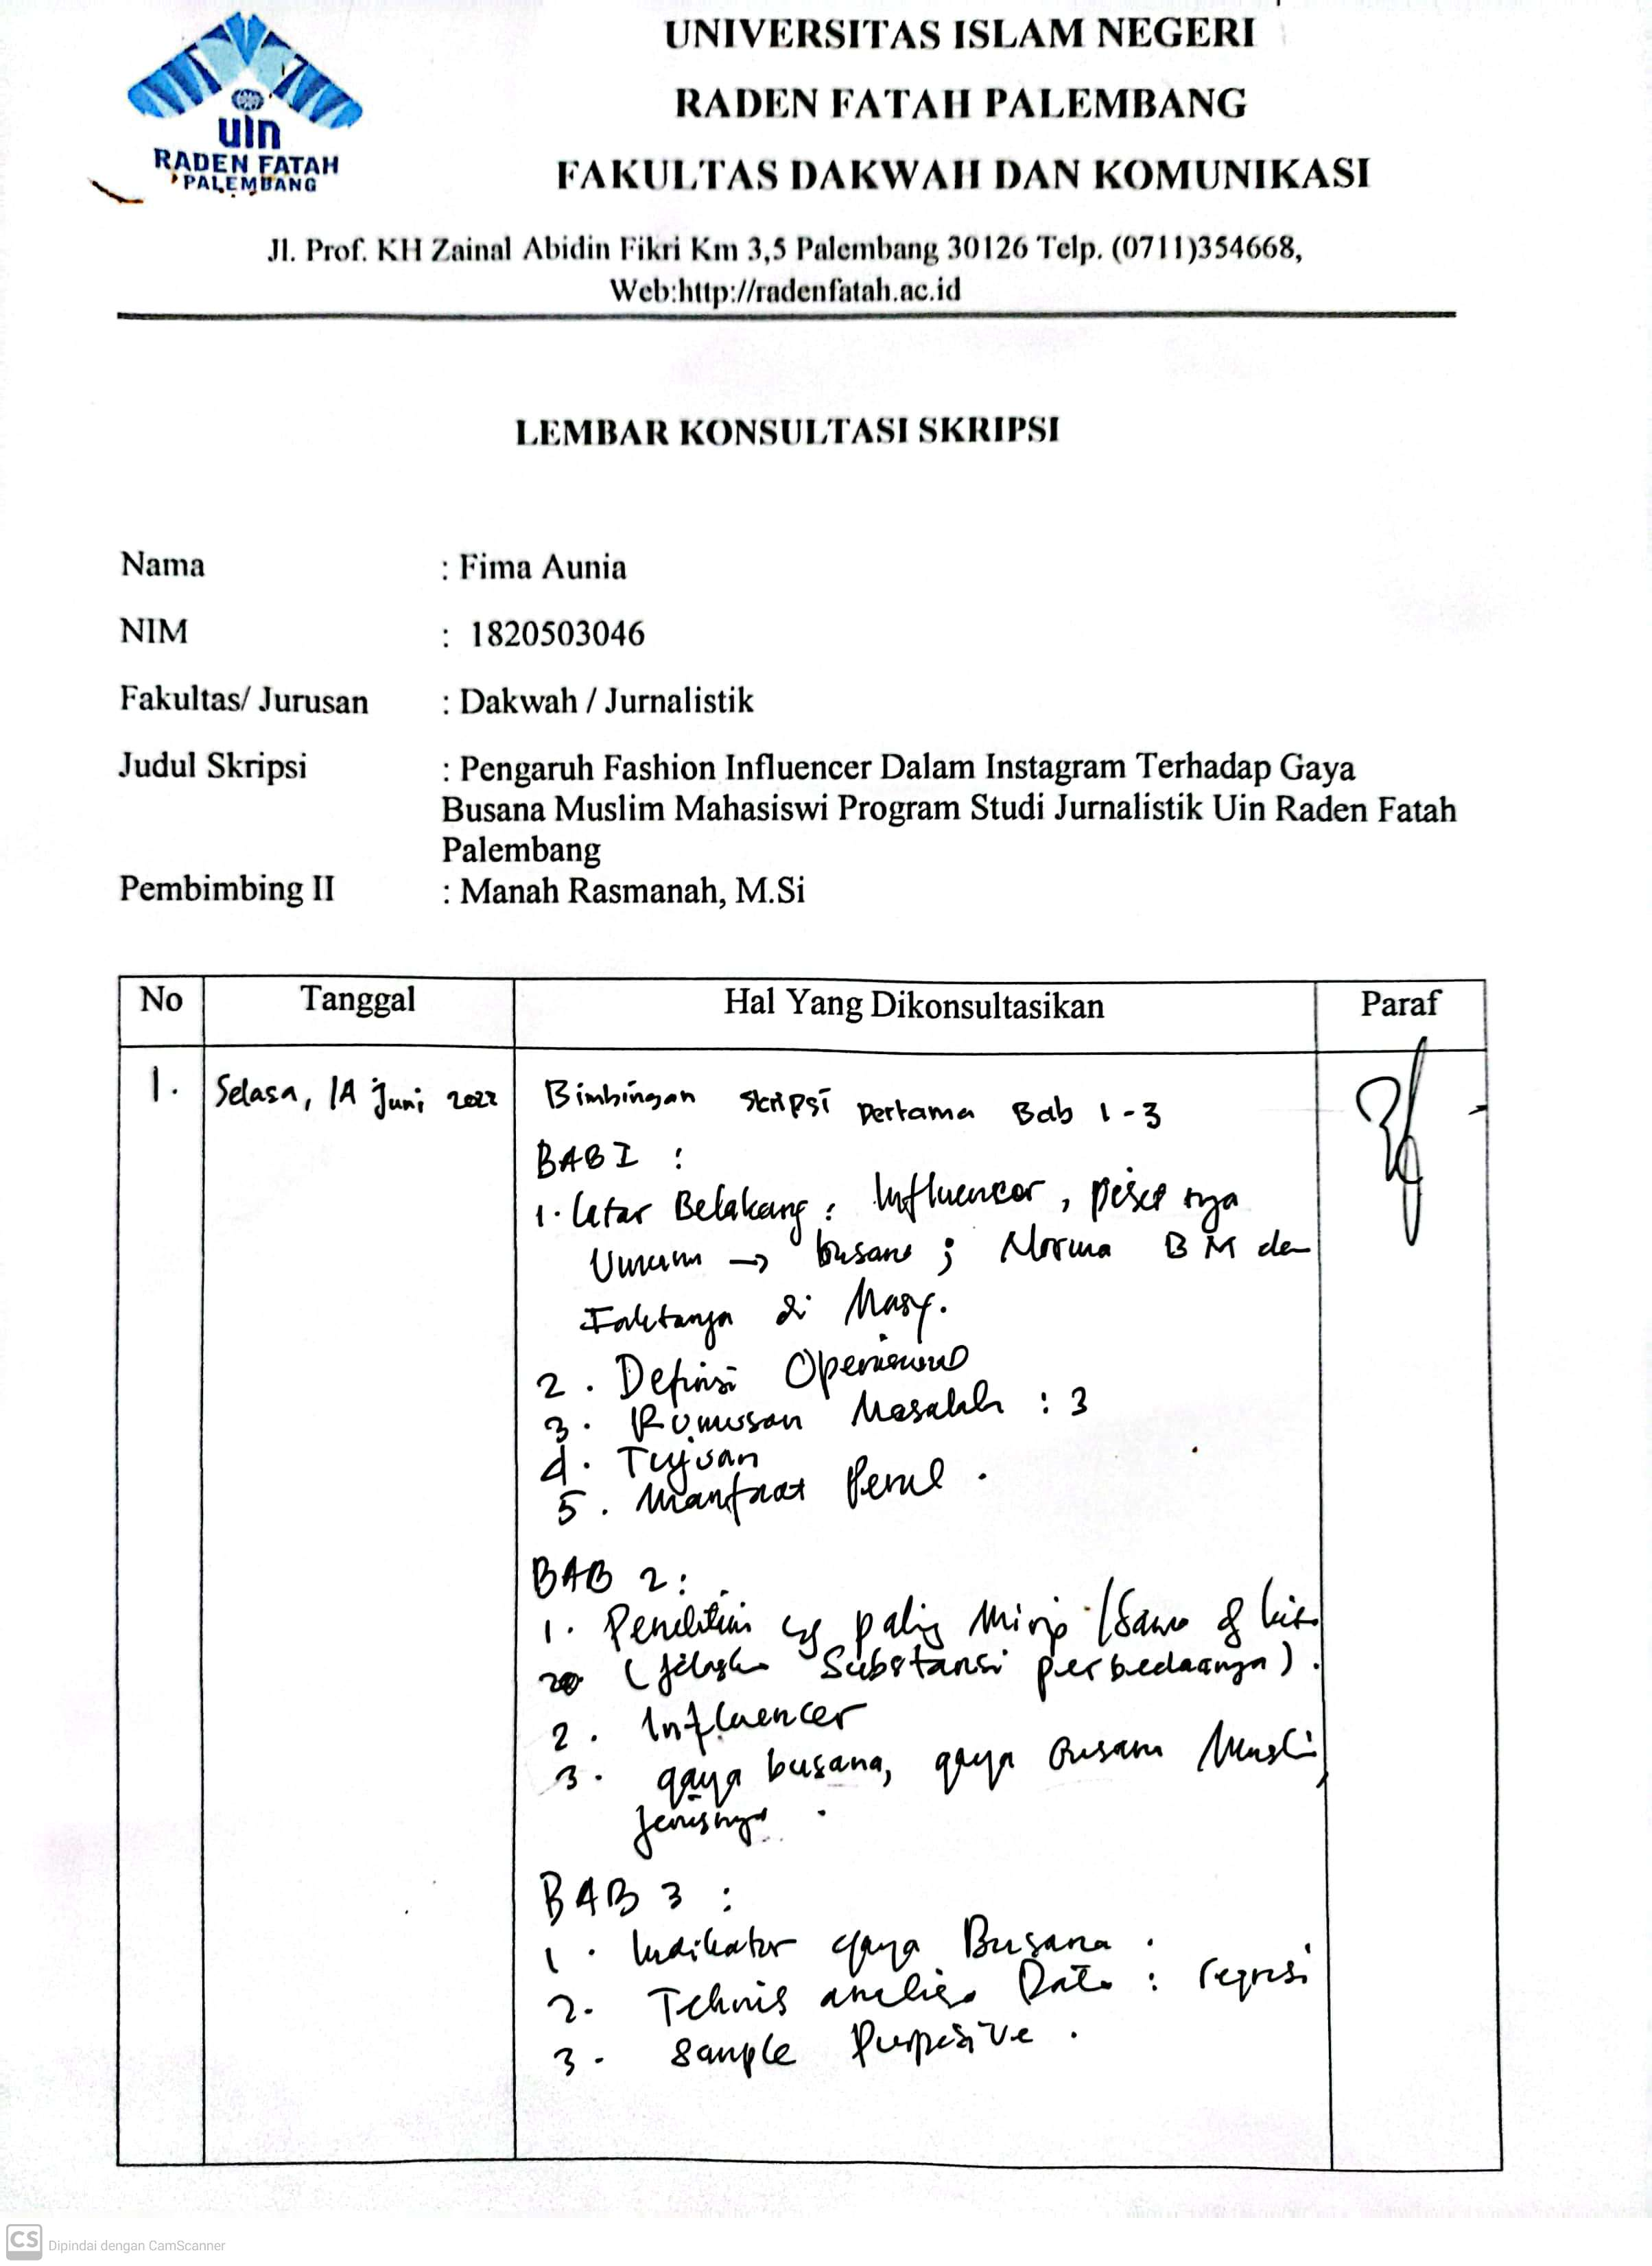 UNIVERSITAS ISLAM NEGERI
RADEN FATAH PALEMBANG
FAKULTAS DAKWAH DAN KOMUNIKASI
uin
RADEN FATAH
PALEMBANG
Jl. Prof. KH Zainal Abidin Fikri Km 3,5 Palembang 30126 Telp. (0711)354668,
Web:http://radenfatah.ac.id
LEMBAR KONSULTASI SKRIPSI
Nama : Fima Aunia
NIM : 1820503046
Fakultas/ Jurusan : Dakwah / Jurnalistik
Judul Skripsi : Pengaruh Fashion Influencer Dalam Instagram Terhadap Gaya
Busana Muslim Mahasiswi Program Studi Jurnalistik Uin Raden Fatah
Palembang
Pembimbing II : Manah Rasmanah, M.Si
No Tanggal Hal Yang Dikonsultasikan Paraf
1. Selasa, 14 Juni 2022 Bimbingan Skripsi Pertama Bab 1-3
BAB I :
1. Latar Belakang : Influencer,
Umum → busana ; Norma BM dan
Faktanya di Masy.
2. Definisi Operasional
3. Rumusan Masalah : 3
4. Tujuan
5. Manfaat Penel.
BAB 2 :
1. Penelitian yg paling Mirip /
(jelaskan Substansi perbedaanya).
2. Influencer
3. gaya busana, gaya Busana Muslim,
Jenisnya.
BAB 3 :
1. Indikator gaya Busana.
2. Teknis analisa Data : regresi
3. Sample Purposive.
CS Dipindai dengan CamScanner